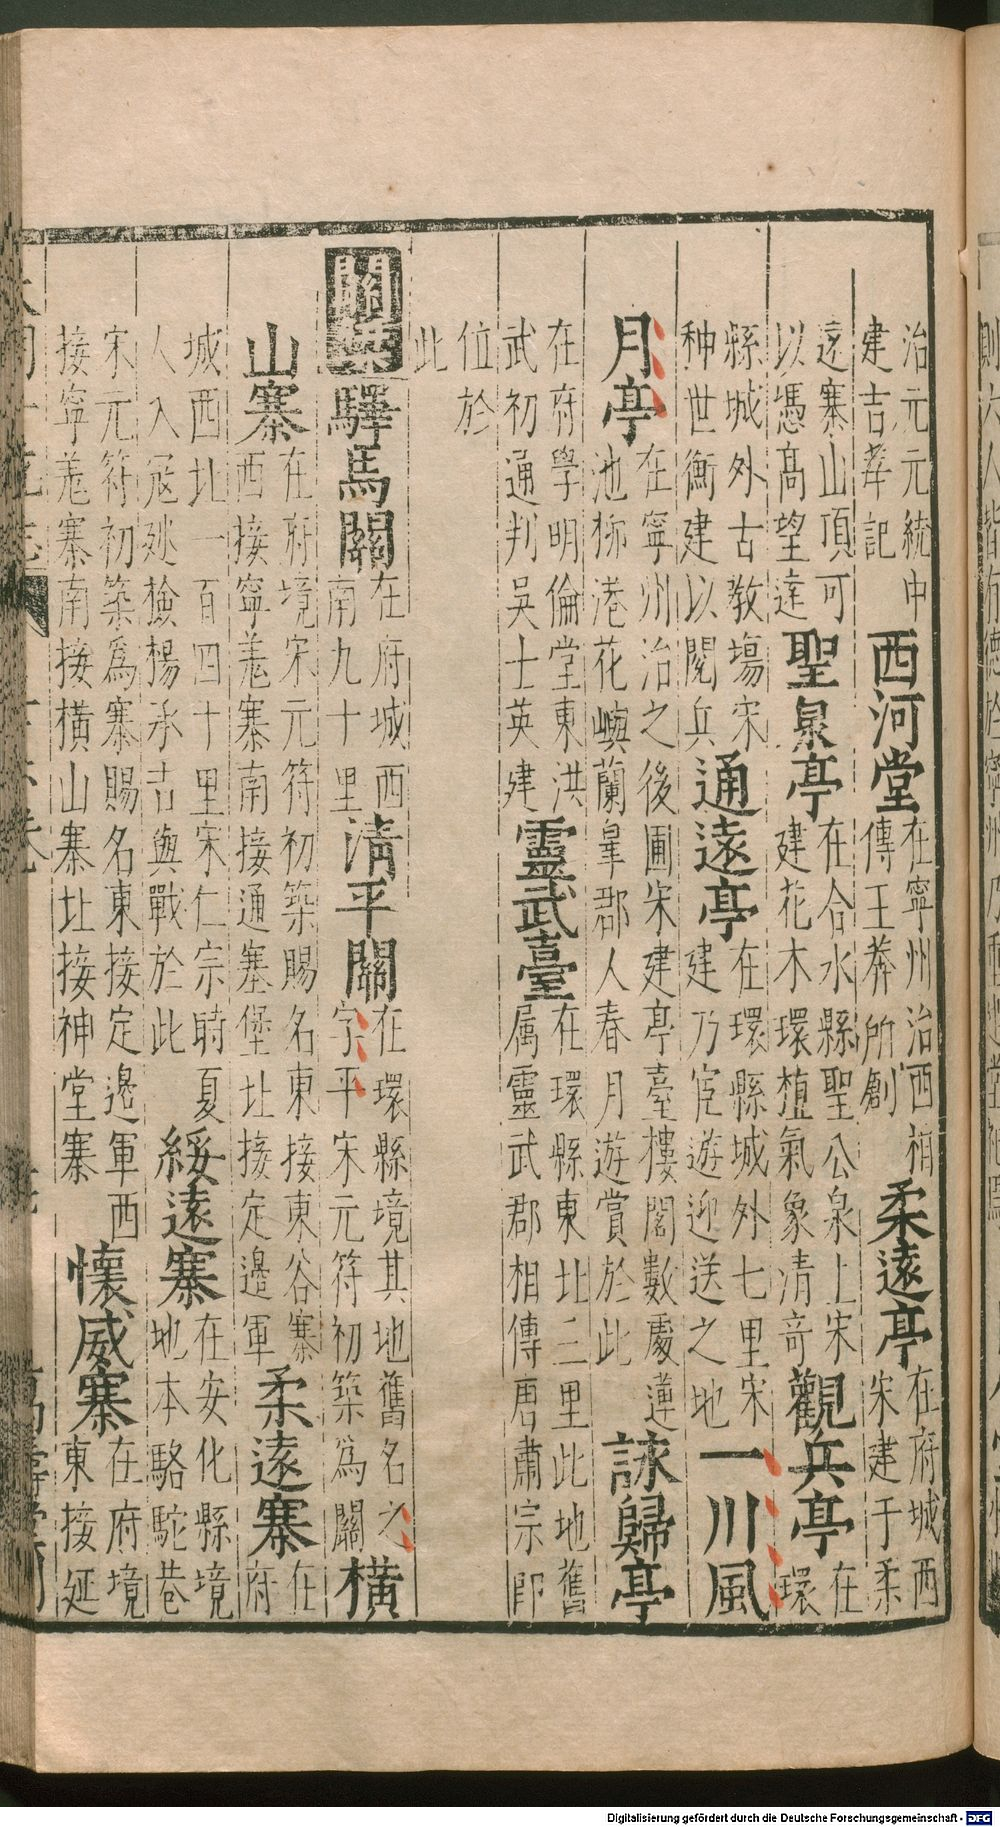 治元元統中建吉莾記西河堂在寧州治西相傳王莽所創柔遠亭在府城西宋建于柔
遠寨山頂可以憑高望遠聖泉亭在合水縣聖公泉上宋建花木環植氣象清奇觀兵亭在環
縣城外古敎塲宋种世衡建以閱兵通遠亭在環縣城外七里宋建乃宦遊迎送之地一川風
月亭在寧州治之後圃宋建亭臺樓閣數處蓮池栁港花嶼蘭皐郡人春月遊賞於此詠歸亭
在府學明倫堂東洪武初通判吳士英建靈武臺在環縣東北三里此地舊属靈武郡相傳唐肅宗即
位於此
關梁驛馬關在府城西南九十里清平關在環縣境其地舊名之字平宋元符初築為關橫
山寨在府境宋元符初築賜名東接東谷寨西接寧羗寨南接通塞堡北接定邊軍柔遠寨在府
城西北一百四十里宋仁宗時夏人入寇廵檢楊承吉與戰於此綏遠寨在安化縣境地本駱駝巷
宋元符初築爲寨賜名東接定邉軍西接寧羗寨南接橫山寨北接神堂寨懷威寨在府境東接延
Digitalisierung gefördert durch die Deutsche Forschungsgemeinschaft - DFG